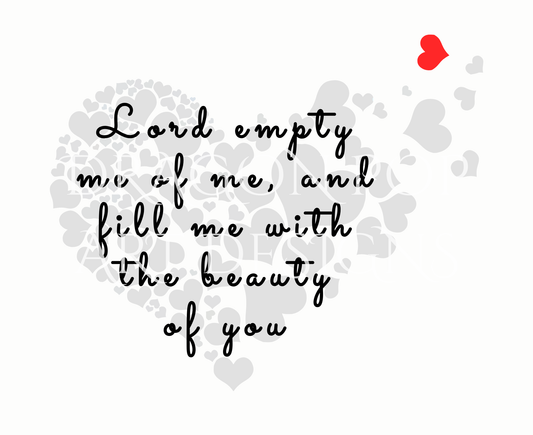 Lord empty
me of me, and
fill me with
the beauty
of you